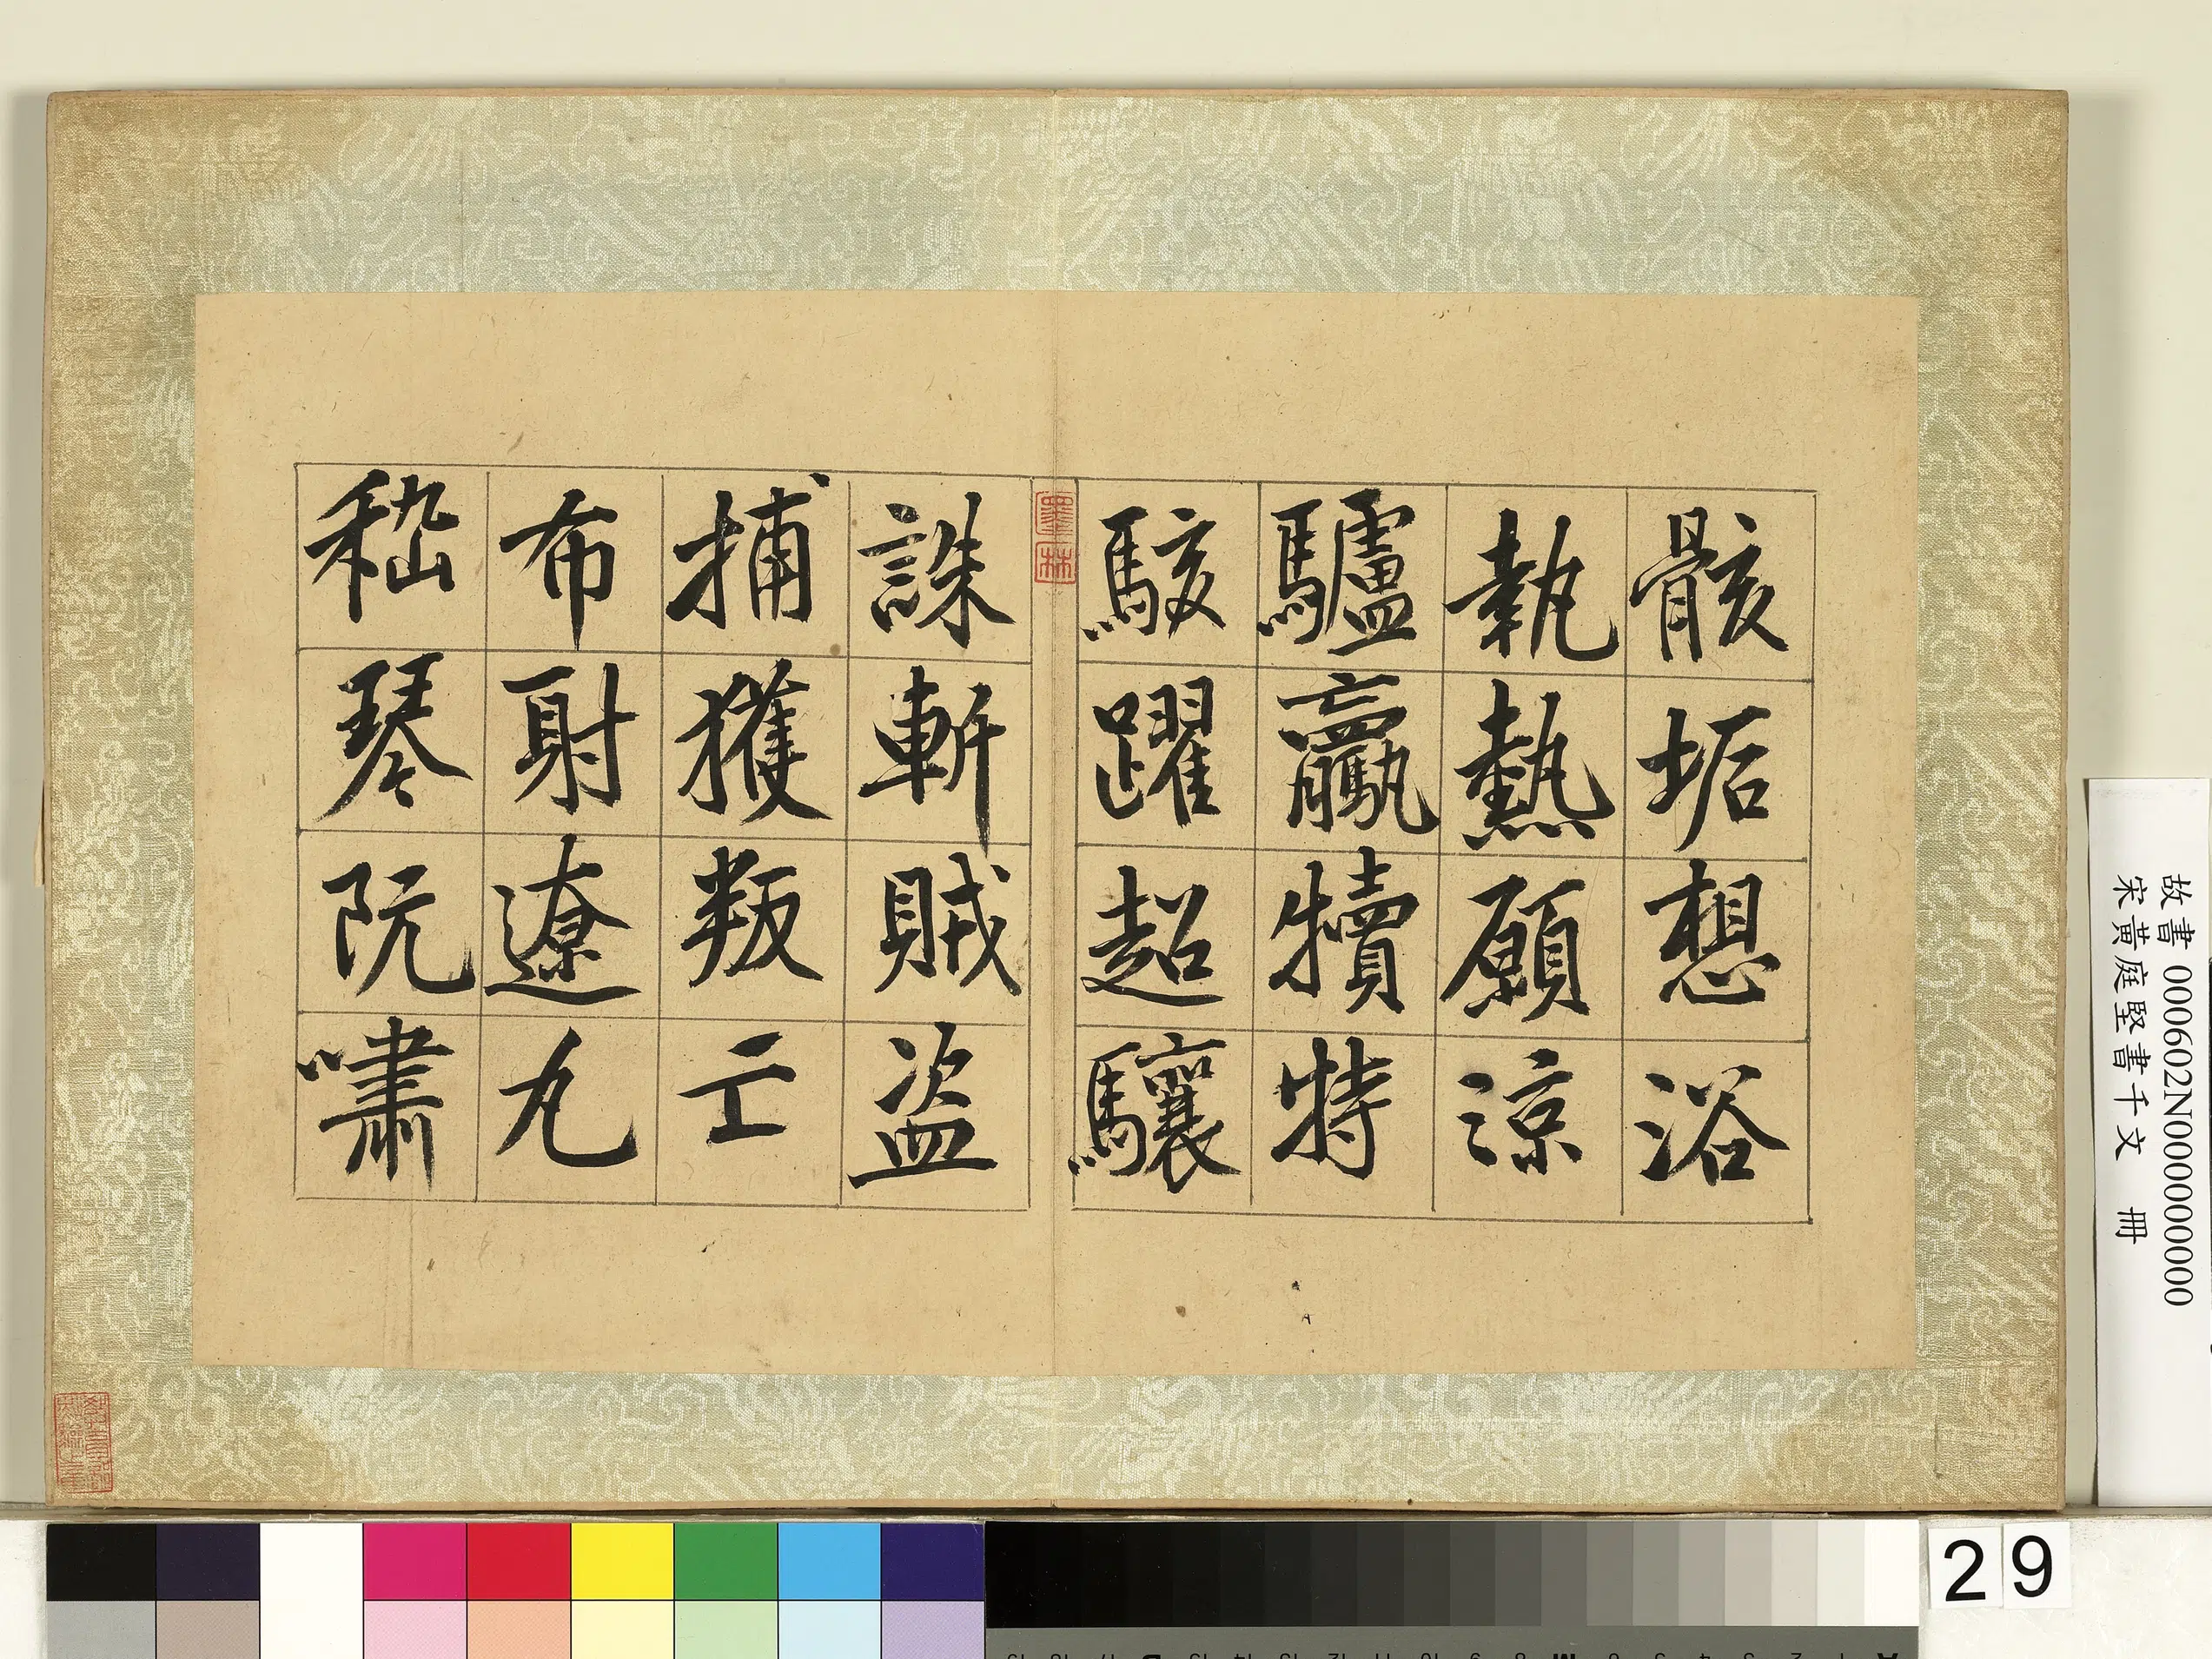 骸垢想浴
執熱願涼
驢驘犢特
駭躍超驤
誅斬賊盜
捕獲叛亡
布射遼丸
嵇琴阮嘯
墨林
故書 000602N000000000
宋黃庭堅書千文 冊
29